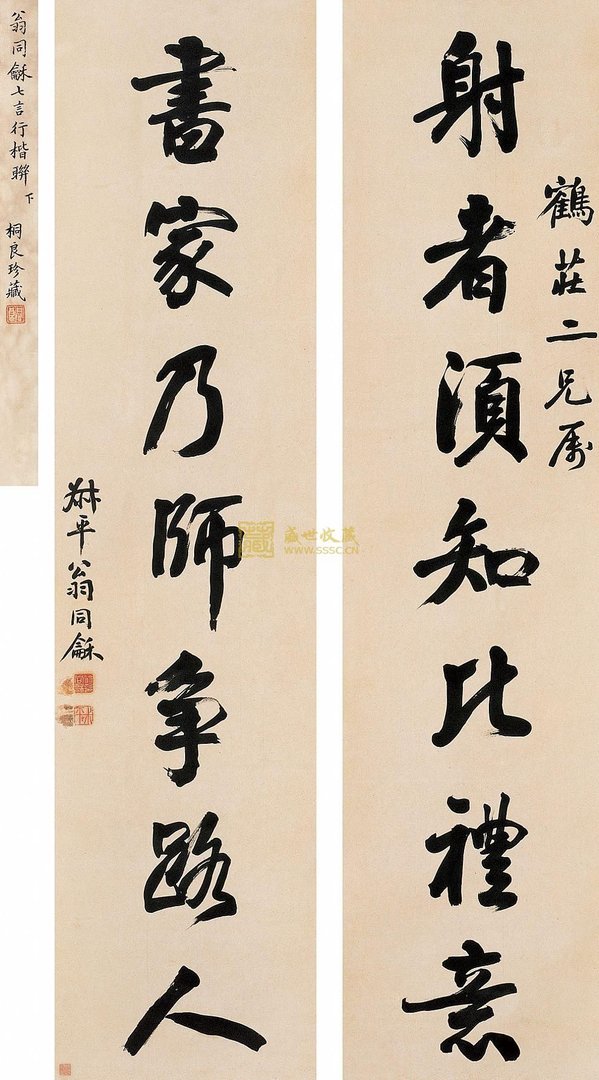 射者須知比禮意
鶴莊二兄屬
書家乃師爭路人
叔平翁同龢
翁同龢七言行楷聯 下
桐良珍藏
盛世收藏
WWW.SSSC.CN